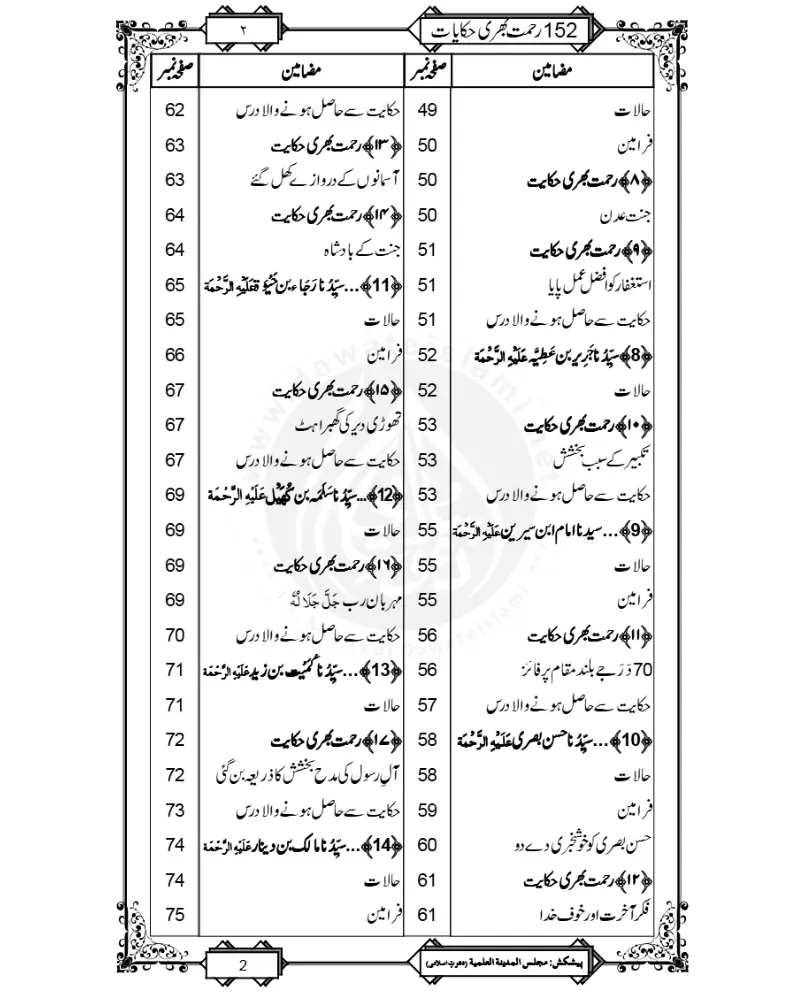 152 رحمت بھری حکایات
۲
مضامین صفحہ نمبر
حالات 49
فرامین 50
﴿۸﴾ رحمت بھری حکایت 50
جنت عدن 50
﴿۹﴾ رحمت بھری حکایت 51
استغفار کو افضل عمل پایا 51
حکایت سے حاصل ہونے والا درس 51
﴿8﴾ سیِّدُنا جَرِیر بن عَطِیَّہ عَلَیْہِ الرَّحْمَۃ 52
حالات 52
﴿۱۰﴾ رحمت بھری حکایت 53
تکبیر کے سبب بخشش 53
حکایت سے حاصل ہونے والا درس 53
﴿9﴾... سیدنا امام ابن سیرین عَلَیْہِ الرَّحْمَۃ 55
حالات 55
فرامین 55
﴿۱۱﴾ رحمت بھری حکایت 56
70 دَرَجے بلند مقام پر فائز 56
حکایت سے حاصل ہونے والا درس 57
﴿10﴾... سیِّدُنا حسن بصری عَلَیْہِ الرَّحْمَۃ 58
حالات 58
فرامین 59
حسن بصری کو خوشخبری دے دو 60
﴿۱۲﴾ رحمت بھری حکایت 61
فکر آخرت اور خوف خدا 61
مضامین صفحہ نمبر
حکایت سے حاصل ہونے والا درس 62
﴿۱۳﴾ رحمت بھری حکایت 63
آسمانوں کے دروازے کھل گئے 63
﴿۱۴﴾ رحمت بھری حکایت 64
جنت کے بادشاہ 64
﴿11﴾... سیِّدُنا رَجَاء بن حَیْوَۃ عَلَیْہِ الرَّحْمَۃ 65
حالات 65
فرامین 66
﴿۱۵﴾ رحمت بھری حکایت 67
تھوڑی دیر کی گھبراہٹ 67
حکایت سے حاصل ہونے والا درس 67
﴿12﴾... سیِّدُنا سَلَمَہ بن کُھَیْل عَلَیْہِ الرَّحْمَۃ 69
حالات 69
﴿۱۶﴾ رحمت بھری حکایت 69
مہربان رب جَلَّ جَلَالُہٗ 69
حکایت سے حاصل ہونے والا درس 70
﴿13﴾... سیِّدُنا کُمَیْت بن زید عَلَیْہِ الرَّحْمَۃ 71
حالات 71
﴿۱۷﴾ رحمت بھری حکایت 72
آلِ رسول کی مدح بخشش کا ذریعہ بن گئی 72
حکایت سے حاصل ہونے والا درس 73
﴿14﴾... سیِّدُنا مالک بن دینار عَلَیْہِ الرَّحْمَۃ 74
حالات 74
فرامین 75
پیشکش: مجلس المدینۃ العلمیۃ (دعوتِ اسلامی)
2